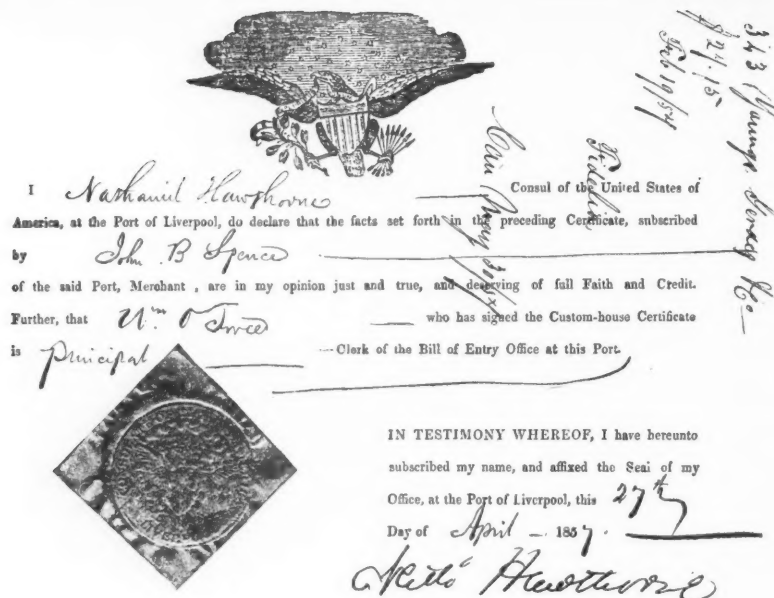 I Nathaniel Hawthorne Consul of the United States of
America, at the Port of Liverpool, do declare that the facts set forth in the preceding Certificate, subscribed
by John B Spence
of the said Port, Merchant , are in my opinion just and true, and deserving of full Faith and Credit.
Further, that Wm who has signed the Custom-house Certificate
is Principal Clerk of the Bill of Entry Office at this Port.
IN TESTIMONY WHEREOF, I have hereunto
subscribed my name, and affixed the Seal of my
Office, at the Port of Liverpool, this 27th
Day of April 1857.
Hawthorne
343 Youngs
$21.15
Feb 19/57
Fidelia